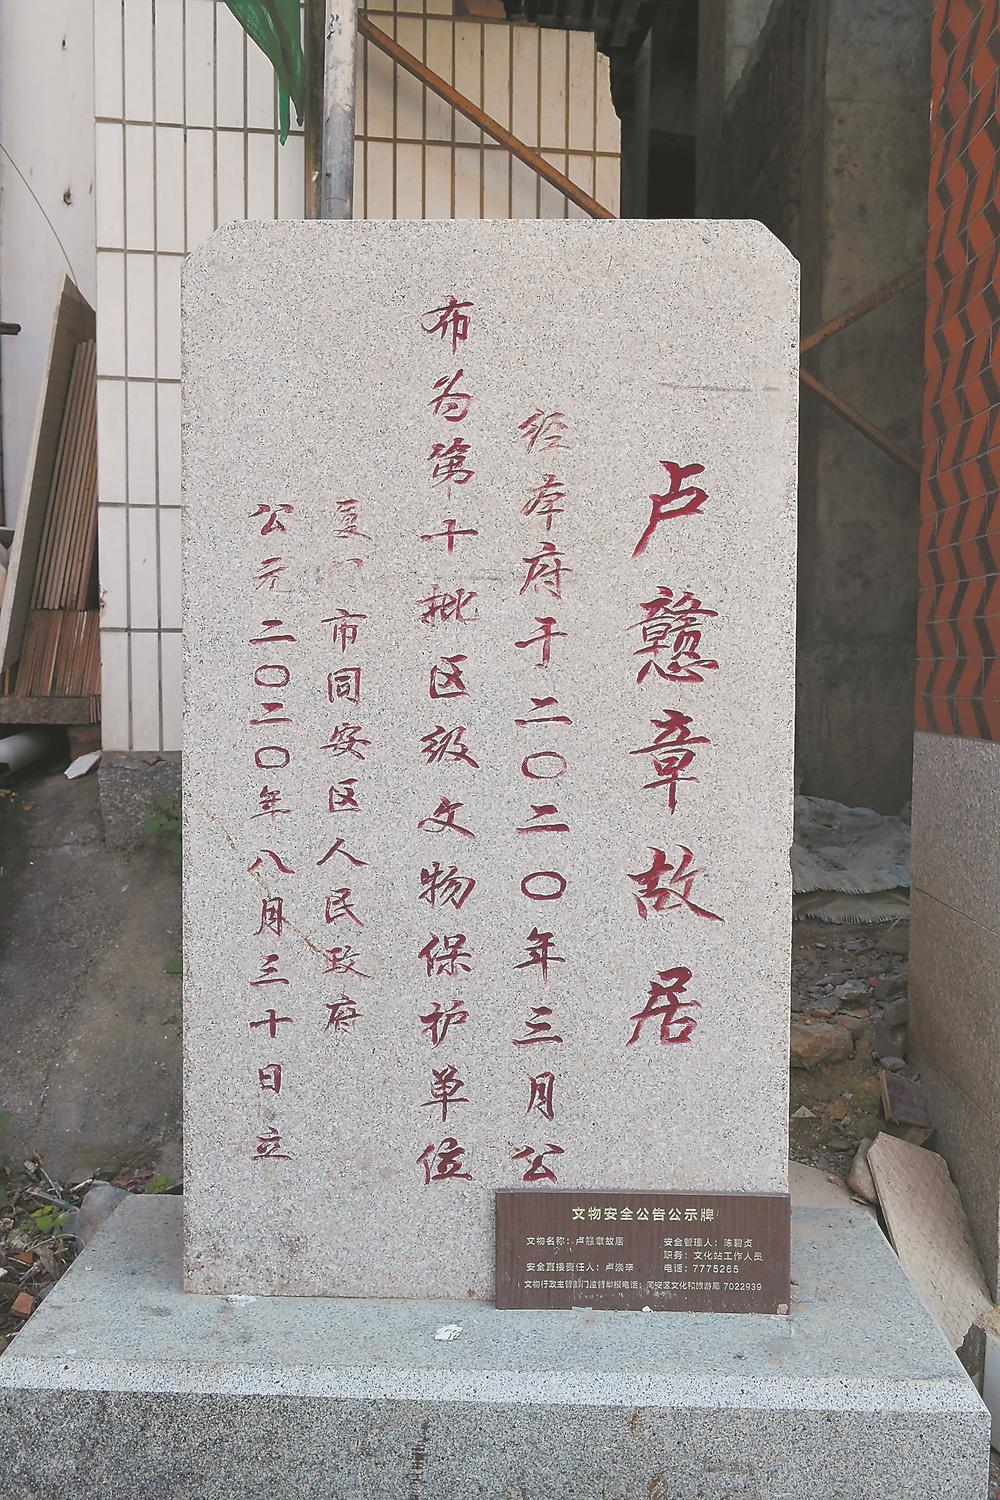 卢戆章故居
经本府于二〇二〇年三月公
布为第十批区级文物保护单位
厦门市同安区人民政府
公元二〇二〇年八月三十日立
文物安全公告公示牌
文物名称：卢戆章故居
安全管理人：陈碧贞
职务：文化站工作人员
安全直接责任人：卢崇辛
电话：7775265
文物行政主管部门监督举报电话：同安区文化和旅游局 7022939